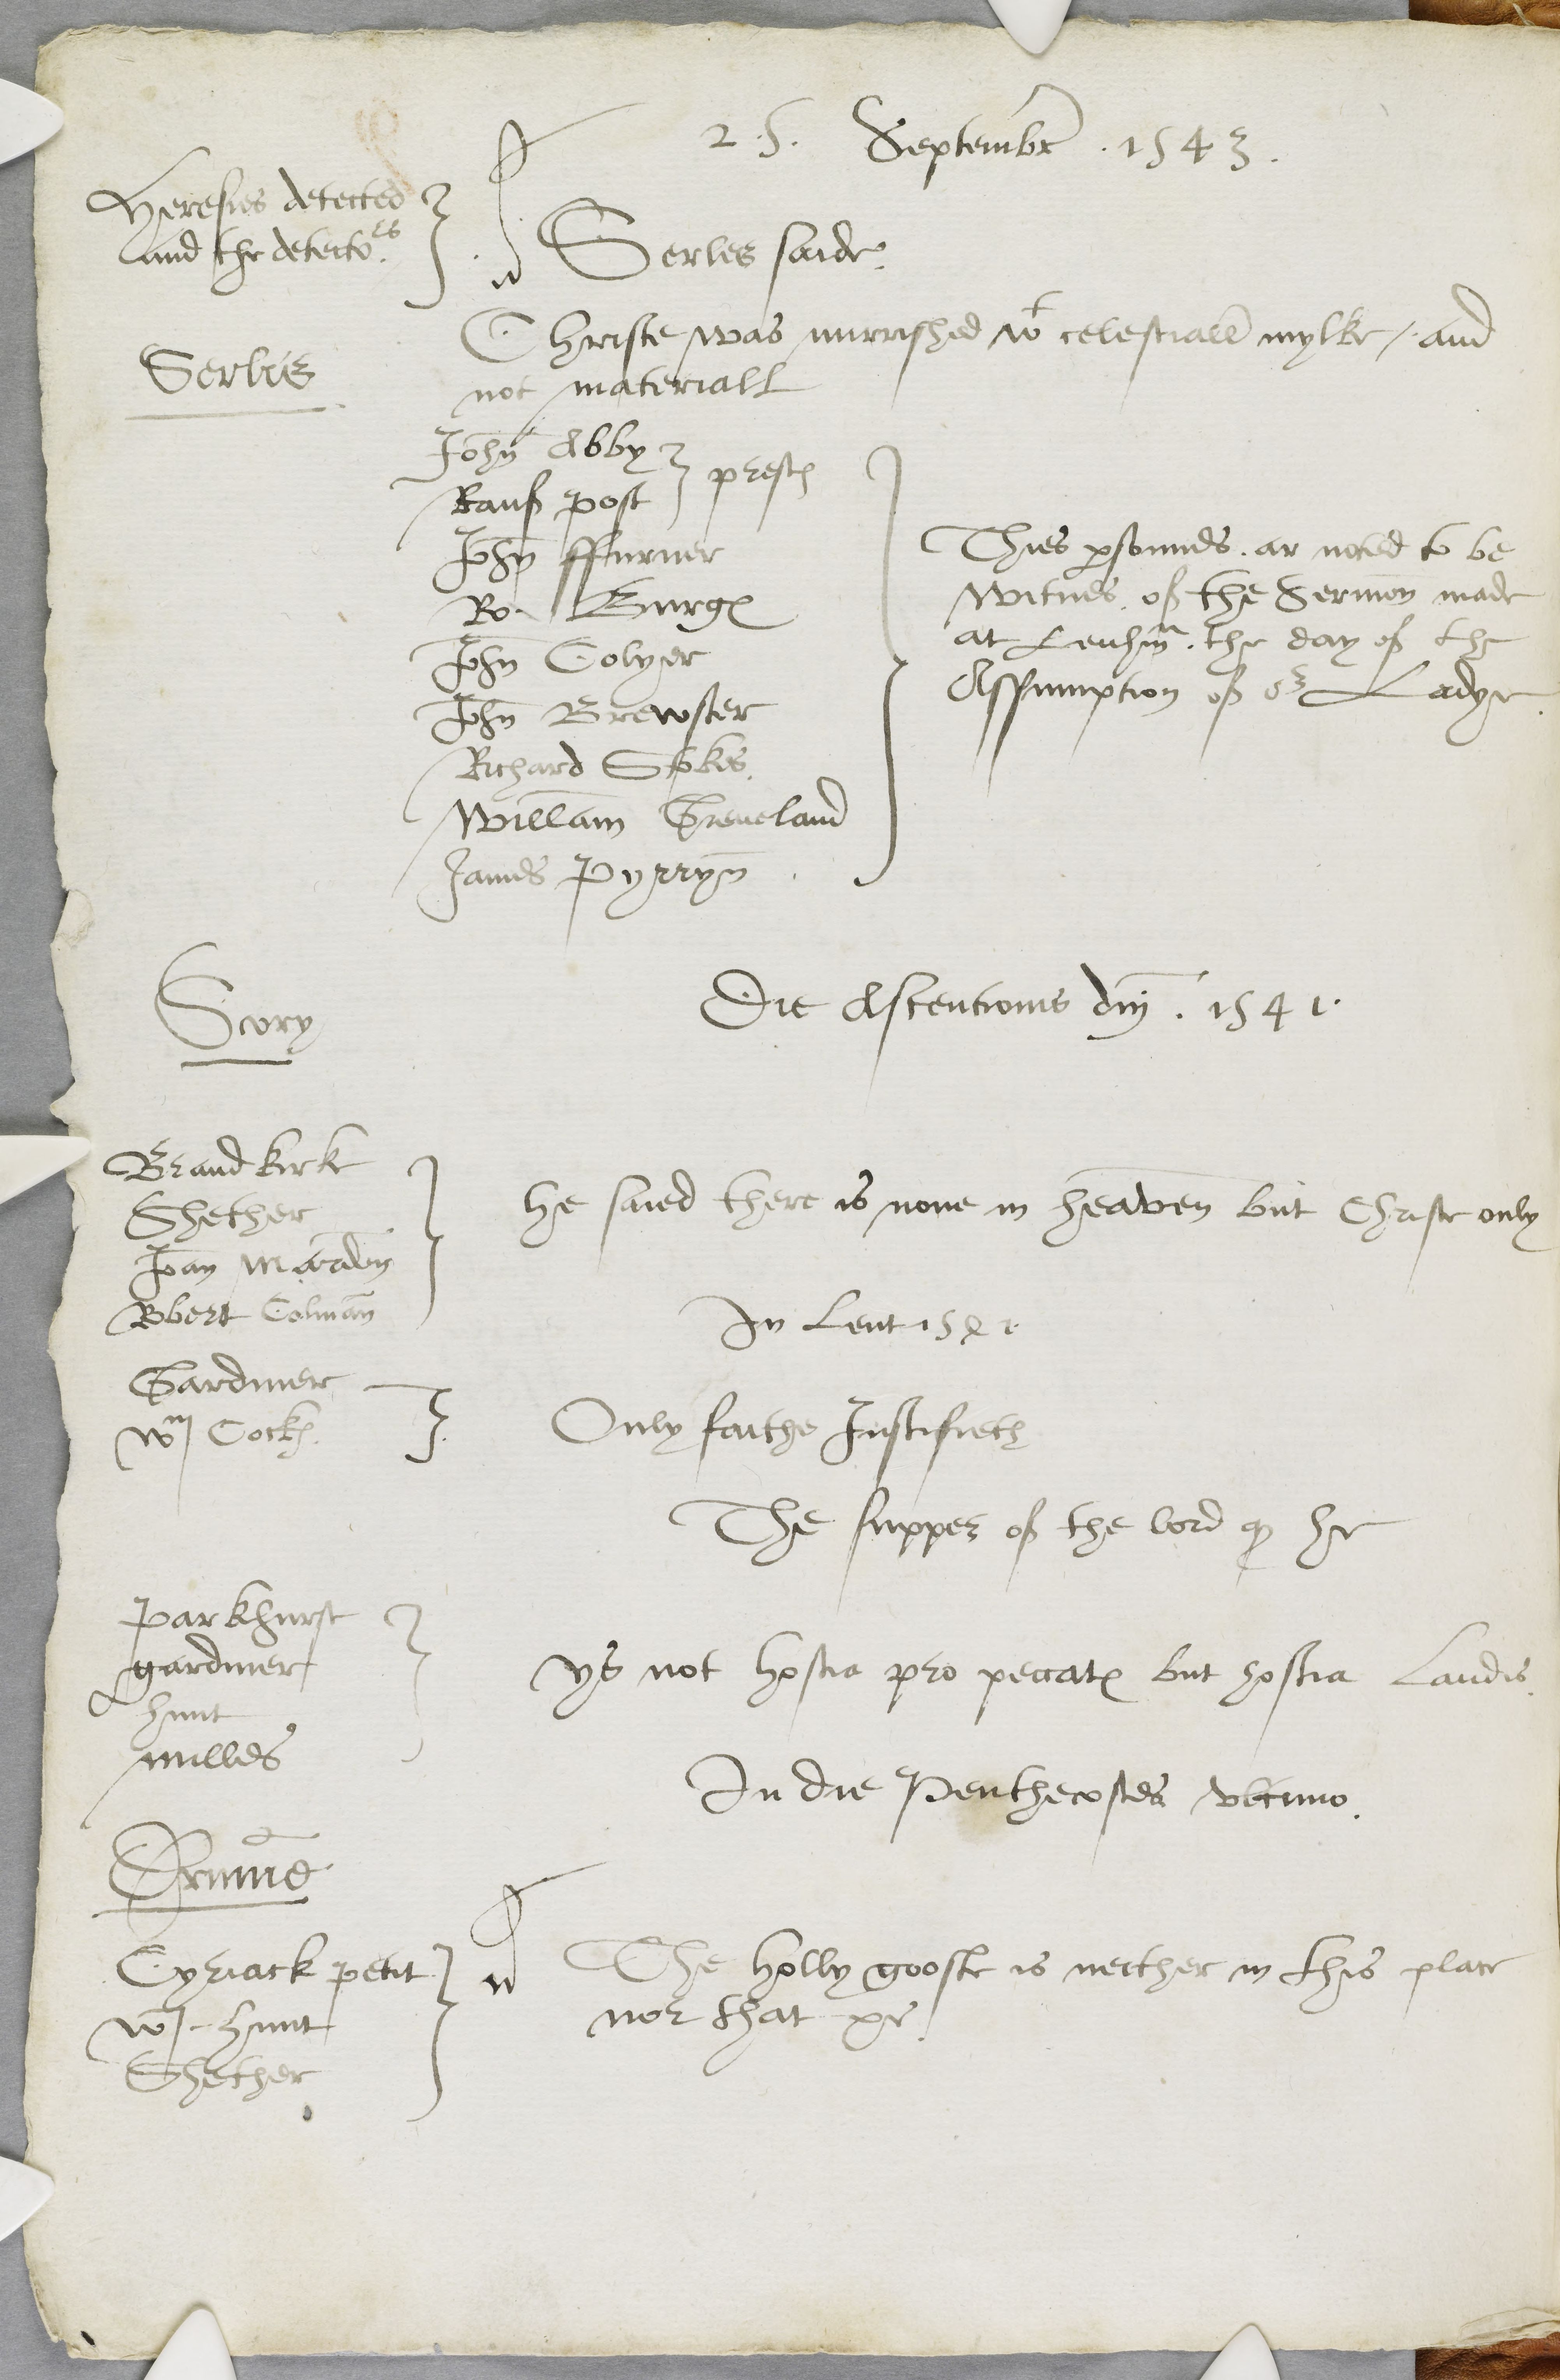 25. Septembr . 1543.
Heresies detected
and the detecto.es
Serles saide.
Serlis
Christe was nurrished wt celestiall mylke / and
not materiall
John Abby
Rauf post
prest
John ffurner
Ro. Burg
John Colyer
John Brewster
Richard Stokes
William Greneland
James Pyrryn
Thies psounes . ar noted to be
Witnes of the Sermon made
at Lenhm . the day of the
Assumption of or Ladye.
Scory
Die Ascentionis dni . 1541.
Brandkirke
Shether
Joan Mardon
Robert Colman
he saied there is none in heaven but Christe only
In Lent 1541
Gardiner
wm Cock
Only faithe Justifieth
The supper of the lord q he
Parkhurst
gardiner
hunt
milles
ys not hostia pro peccat but hostia Laudis.
In die Penthecostes ultimo.
Drume
Cyriack petit
w. hunt
Shether
The holly gooste is neither in this place
nor that &c